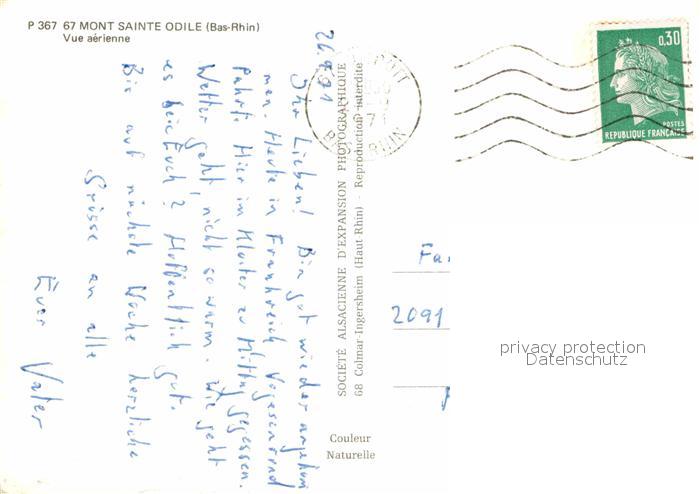 P 367 67 MONT SAINTE ODILE (Bas-Rhin)
Vue aérienne
0,30
POSTES
REPUBLIQUE FRANÇAISE
BAS-RHIN
SOCIÉTÉ ALSACIENNE D'EXPANSION PHOTOGRAPHIQUE
68 Colmar-Ingersheim (Haut Rhin) - Reproduction interdite
Ihr Lieben! Bin gut wieder angekom
men. Heute in Frankreich Vogesenrand
fahrt. Hier im Kloster zu Mittag gegessen.
Wetter geht, nicht so warm. Wie geht
es bei Euch? Hoffentlich gut.
Bis auf nächste Woche herzliche
Grüsse an alle
Euer Vater
Fa.
2091
privacy protection
Datenschutz
Couleur
Naturelle